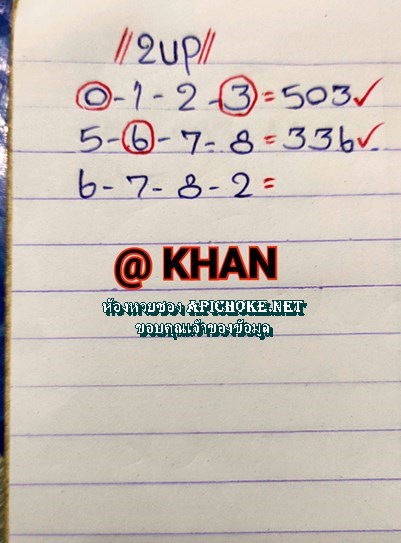 //2up//
0-1-2-3=503✓
5-6-7-8=336✓
6-7-8-2=
@ KHAN
ห้องหวยซอง APICHOKE.NET
ขอบคุณเจ้าของข้อมูล